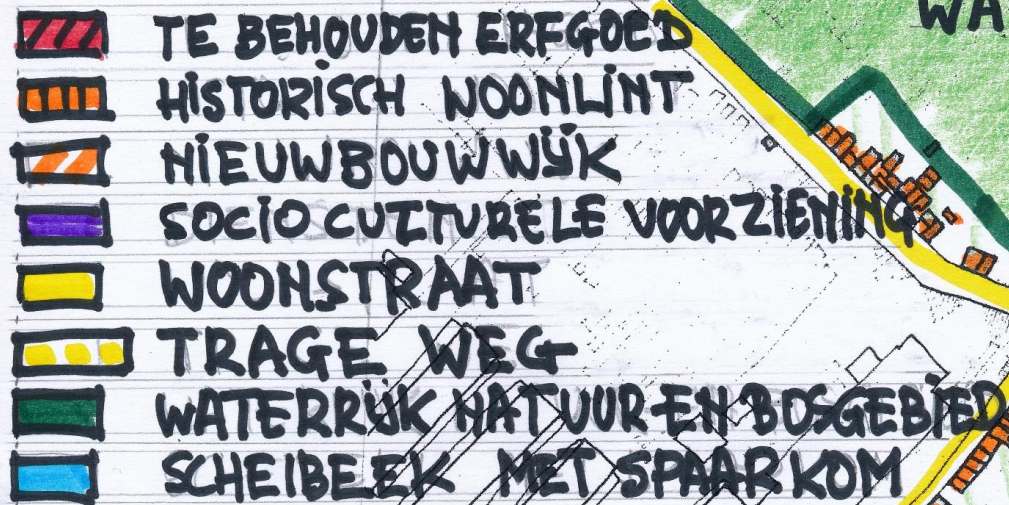 TE BEHOUDEN ERFGOED
WA
HISTORISCH WOONLINT
NIEUWBOUWWIJK
SOCIO CULTURELE VOORZIENING
WOONSTRAAT
TRAGE WEG
WATERRIJK NATUUR-EN-BOSGEBIED
SCHEIBEEK MET SPAARKOM